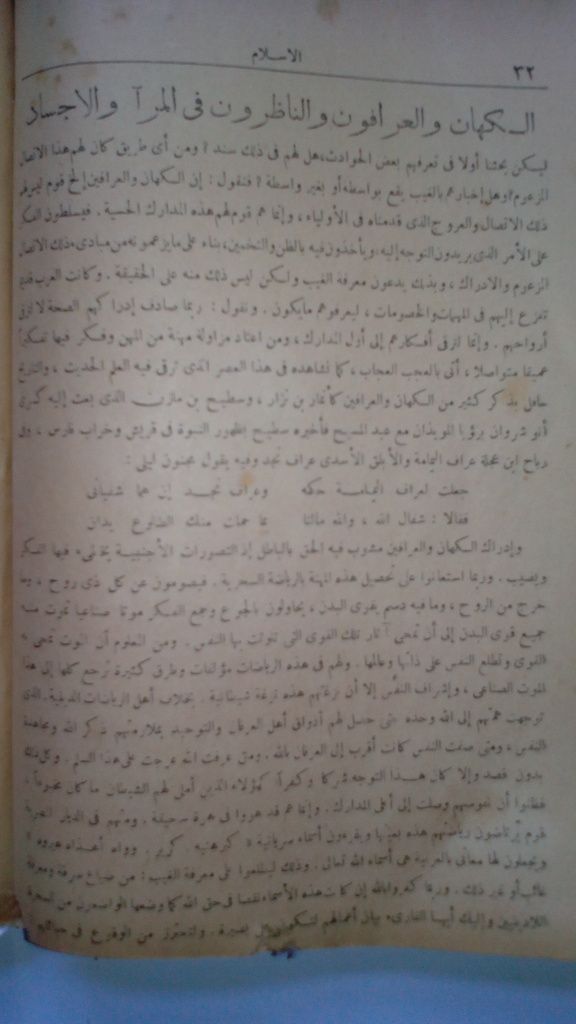 الاسلام
٣٢
الكهان والعرافون والناظرون فى المرآ والاجساد
ليكن بحثنا أولا فى تعرفهم بعض الحوادث، هل لهم فى ذلك سند؟ ومن أى طريق كان لهم هذا الاتصال
المزعوم؟ وهل إخبارهم بالغيب يقع بواسطة أو بغير واسطة؟ فنقول: إن الكهان والعرافين إلخ قوم ليس لهم
ذلك الاتصال والعروج الذى قدمناه فى الأولياء، وإنما هم قوم لهم هذه المدارك الحسية. فيسلطون الفكر
على الأمر الذى يريدون التوجه إليه، ويأخذون فيه بالظن والتخمين، بناء على ما يزعمونه من مبادىء ذلك الاتصال
المزعوم والادراك، وبذلك يدعون معرفة الغيب ولكن ليس ذلك منه على الحقيقة. وكانت العرب قديما
تفزع إليهم فى المهمات والخصومات، ليعرفوهم ما يكون. ونقول: ربما صادف إدراكهم الصحة لا لرقى
أرواحهم. وإنما لرقى أفكارهم إلى أول المدارك، ومن اعتاد مزاولة مهنة من المهن وفكر فيها تفكيرا
عميقا متواصلا، أتى بالعجب العجاب، كما نشاهده فى هذا العصر الذى ترقى فيه العلم الحديث، والتاريخ
حافل بذكر كثير من الكهان والعرافين كأنمار بن نزار، وسطيح بن مازن الذى بعث إليه كسرى
أنو شروان برؤيا الموبذان مع عبد المسيح فأخبره سطيح بظهور النبوة فى قريش وخراب فارس، وفى
رباح ابن عجلة عراف اليمامة والأبلق الأسدى عراف نجد وفيه يقول مجنون ليلى:
جعلت لعراف اليمامة حكمه وعراف نجد إن هما شفيانى
فقالا: شفاك الله، والله مالنا بما حملت منك الضلوع يدان
وإدراك الكهان والعرافين مشوب فيه الحق بالباطل إذ التصورات الأجنبية يخطىء فيها الفكر
ويصيب. وربما استعانوا على تحصيل هذه المهنة بالرياضة السحرية. فيصومون عن كل ذى روح، وما
خرج من الروح، وما فيه دسم يقوى البدن، يحاولون بالجوع وجمع الفكر موتا صناعيا تموت منه
جميع قوى البدن إلى أن تمحى آثار تلك القوى التى تلوثت بها النفس. ومن المعلوم أن الموت تمحى به
القوى وتطلع النفس على ذاتها وعالمها. ولهم فى هذه الرياضات مؤلفات وطرق كثيرة ترجع كلها إلى هذا
الموت الصناعى، وإشراف النفس إلا أن نزعتهم هذه نزعة شيطانية. بخلاف أهل الرياضات الدينية. الذى
توجهت همتهم إلى الله وحده حتى حصل لهم أذواق أهل العرفان والتوحيد بملازمتهم ذكر الله ومجاهدة
النفس، ومتى صفت النفس كانت أقرب إلى العرفان بالله. ومتى عرفت الله عرجت على هذا السلم. وكل ذلك
بدون قصد وإلا كان هذا التوجه شركا وكفرا، كهؤلاء الذين أملى لهم الشيطان ما كان
فظنوا أن نفوسهم وصلت إلى أعلى المدارك. وإنما هم قد هووا فى هوة سحيقة. ومنهم فى الديار المصرية
قوم يرتاضون رياضتهم هذه بعينها ويقرءون أسماء سريانية
ويجعلون لها معانى بالعربية هى أسماء الله تعالى. وذلك ليطلعوا على معرفة الغيب: من ضياع سرقة ومعرفة
غائب أو غير ذلك. وربما كفروا بالله إن كانت هذه الأسماء نقصا فى حق الله كما وضعها الواضعون من السحرة
وإليك أيها القارىء بيان أعمالهم لتكون على بصيرة. ولتحترز من الوقوع فى حبائلهم